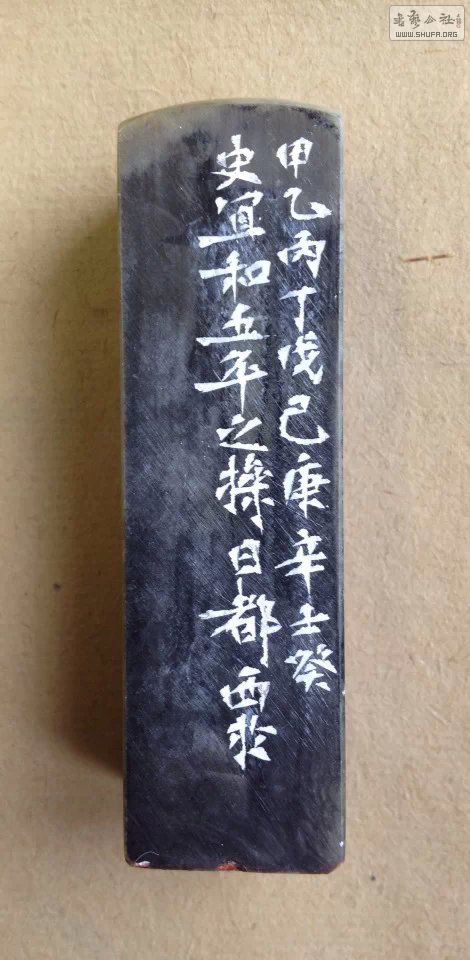 甲乙丙丁戊己庚辛壬癸
史宜和五年之操日都西於
書藝公社
WWW.SHUFA.ORG